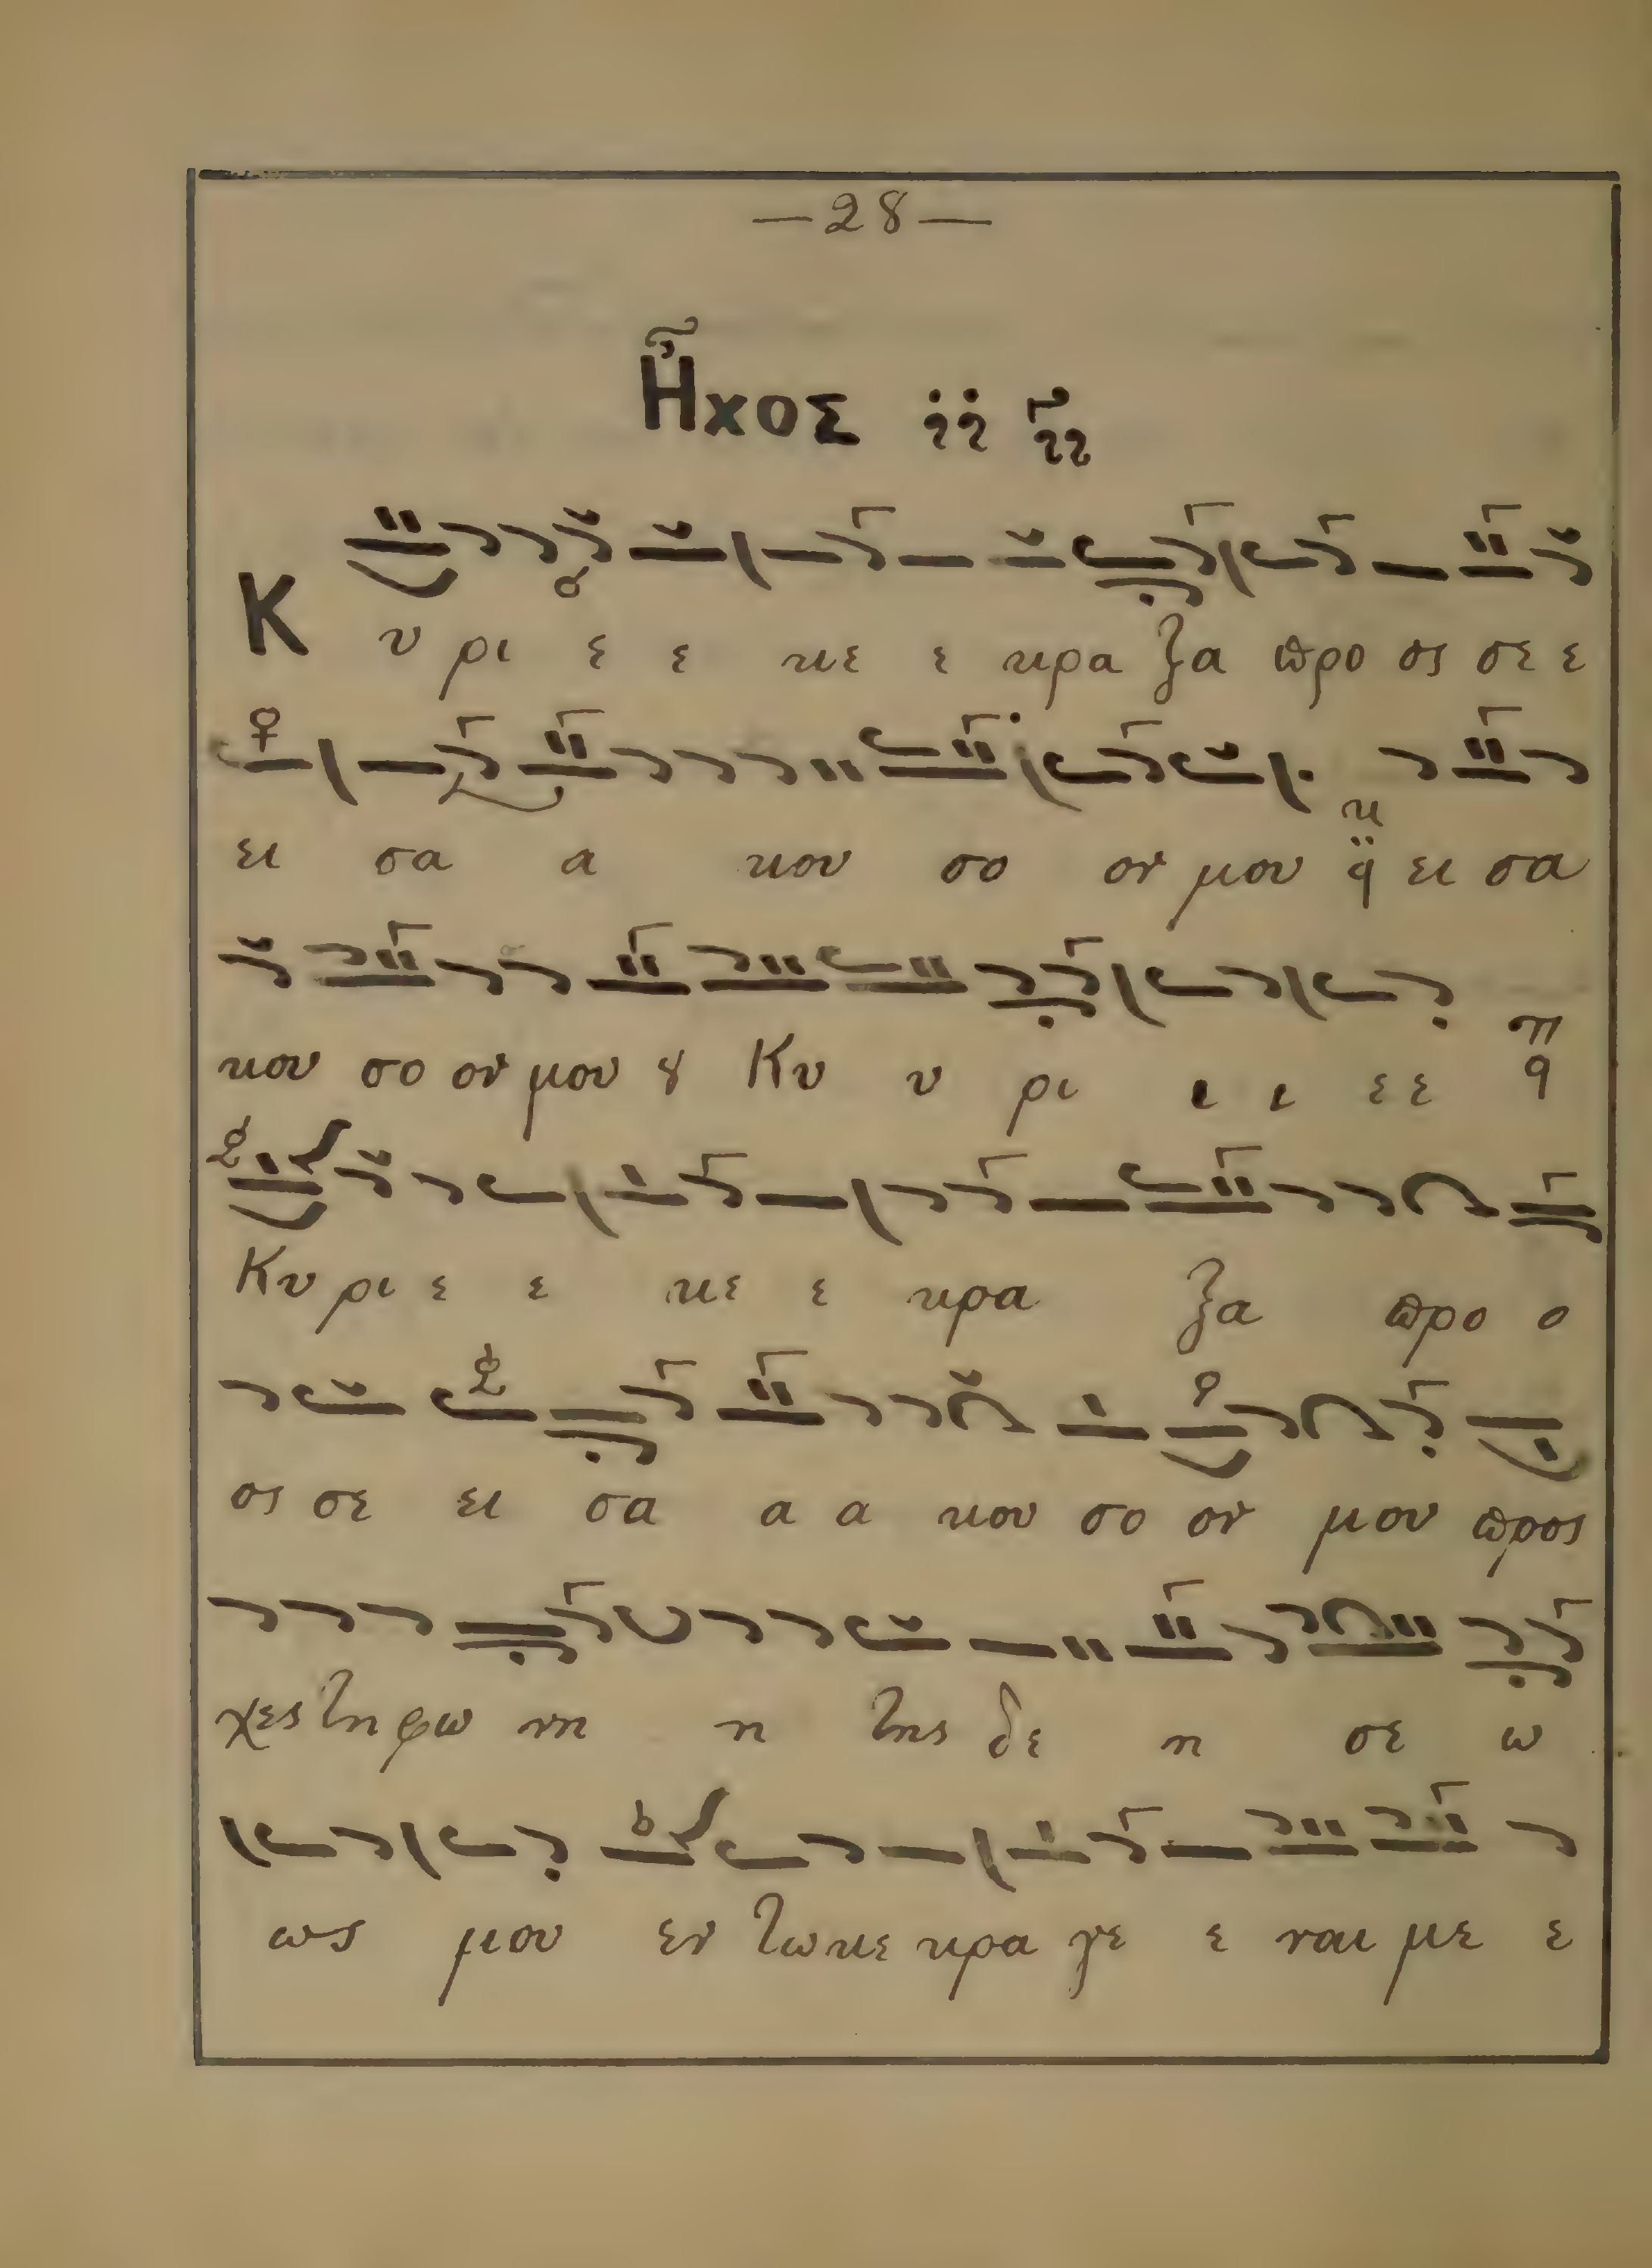 —28—
Ἦχος
Κ υ ρι ε ε κε ε κρα ξα προ ος σε ε
ει σα α κου σο ον μου ει σα
κου σο ον μου ȣ Κυ υ ρι ι ι ε ε
Κυ ρι ε ε κε ε κρα ξα προ ο
ος σε ει σα α α κου σο ον μου προς
χες τη φω νη η της δε η σε ω
ως μου εν τω κε κρα γε ε ναι με ε